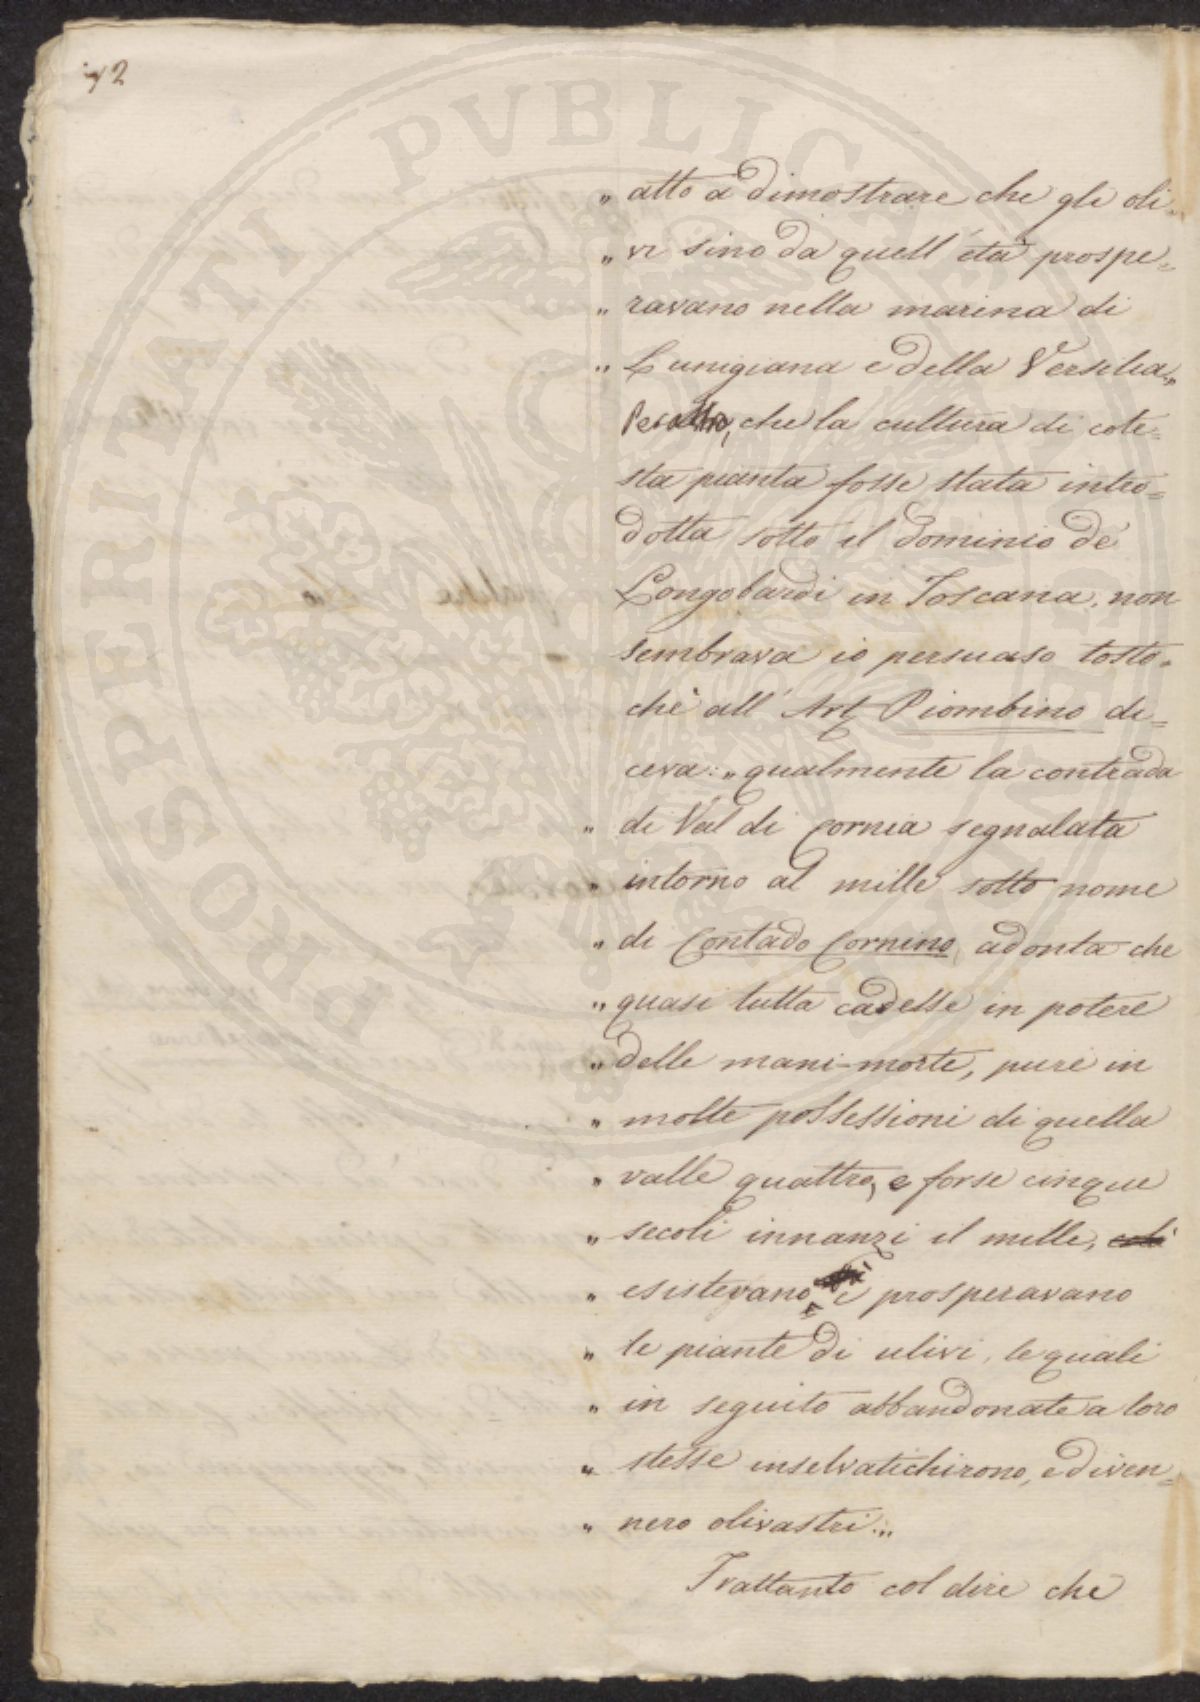 72
PROSPERITATI PVBLICAE
„ atto a dimostrare che gli oli=
„ vi sino da quell'età prospe=
„ ravano nella marina di
„ Lunigiana e della Versilia„
che la cultura di cote=
sta pianta fosse stata intro=
dotta sotto il dominio de'
Longobardi in Toscana, non
sembrava io persuaso tosto=
chè all'Art Piombino di=
ceva: „ qualmente la contrada
„ di Val di Cornia segnalata
„ intorno al mille sotto nome
„ di Contado Cornino, adonta che
„ quasi tutta cadesse in potere
„ delle mani-morte, pure in
„ molte possessioni di quella
„ valle quattro, e forse cinque
„ secoli innanzi il mille,
„ esistevano e prosperavano
„ le piante di ulivi, le quali
„ in seguito abbandonate a loro
„ stesse inselvatichirono, e diven=
„ nero olivastri„
Trattanto col dire che